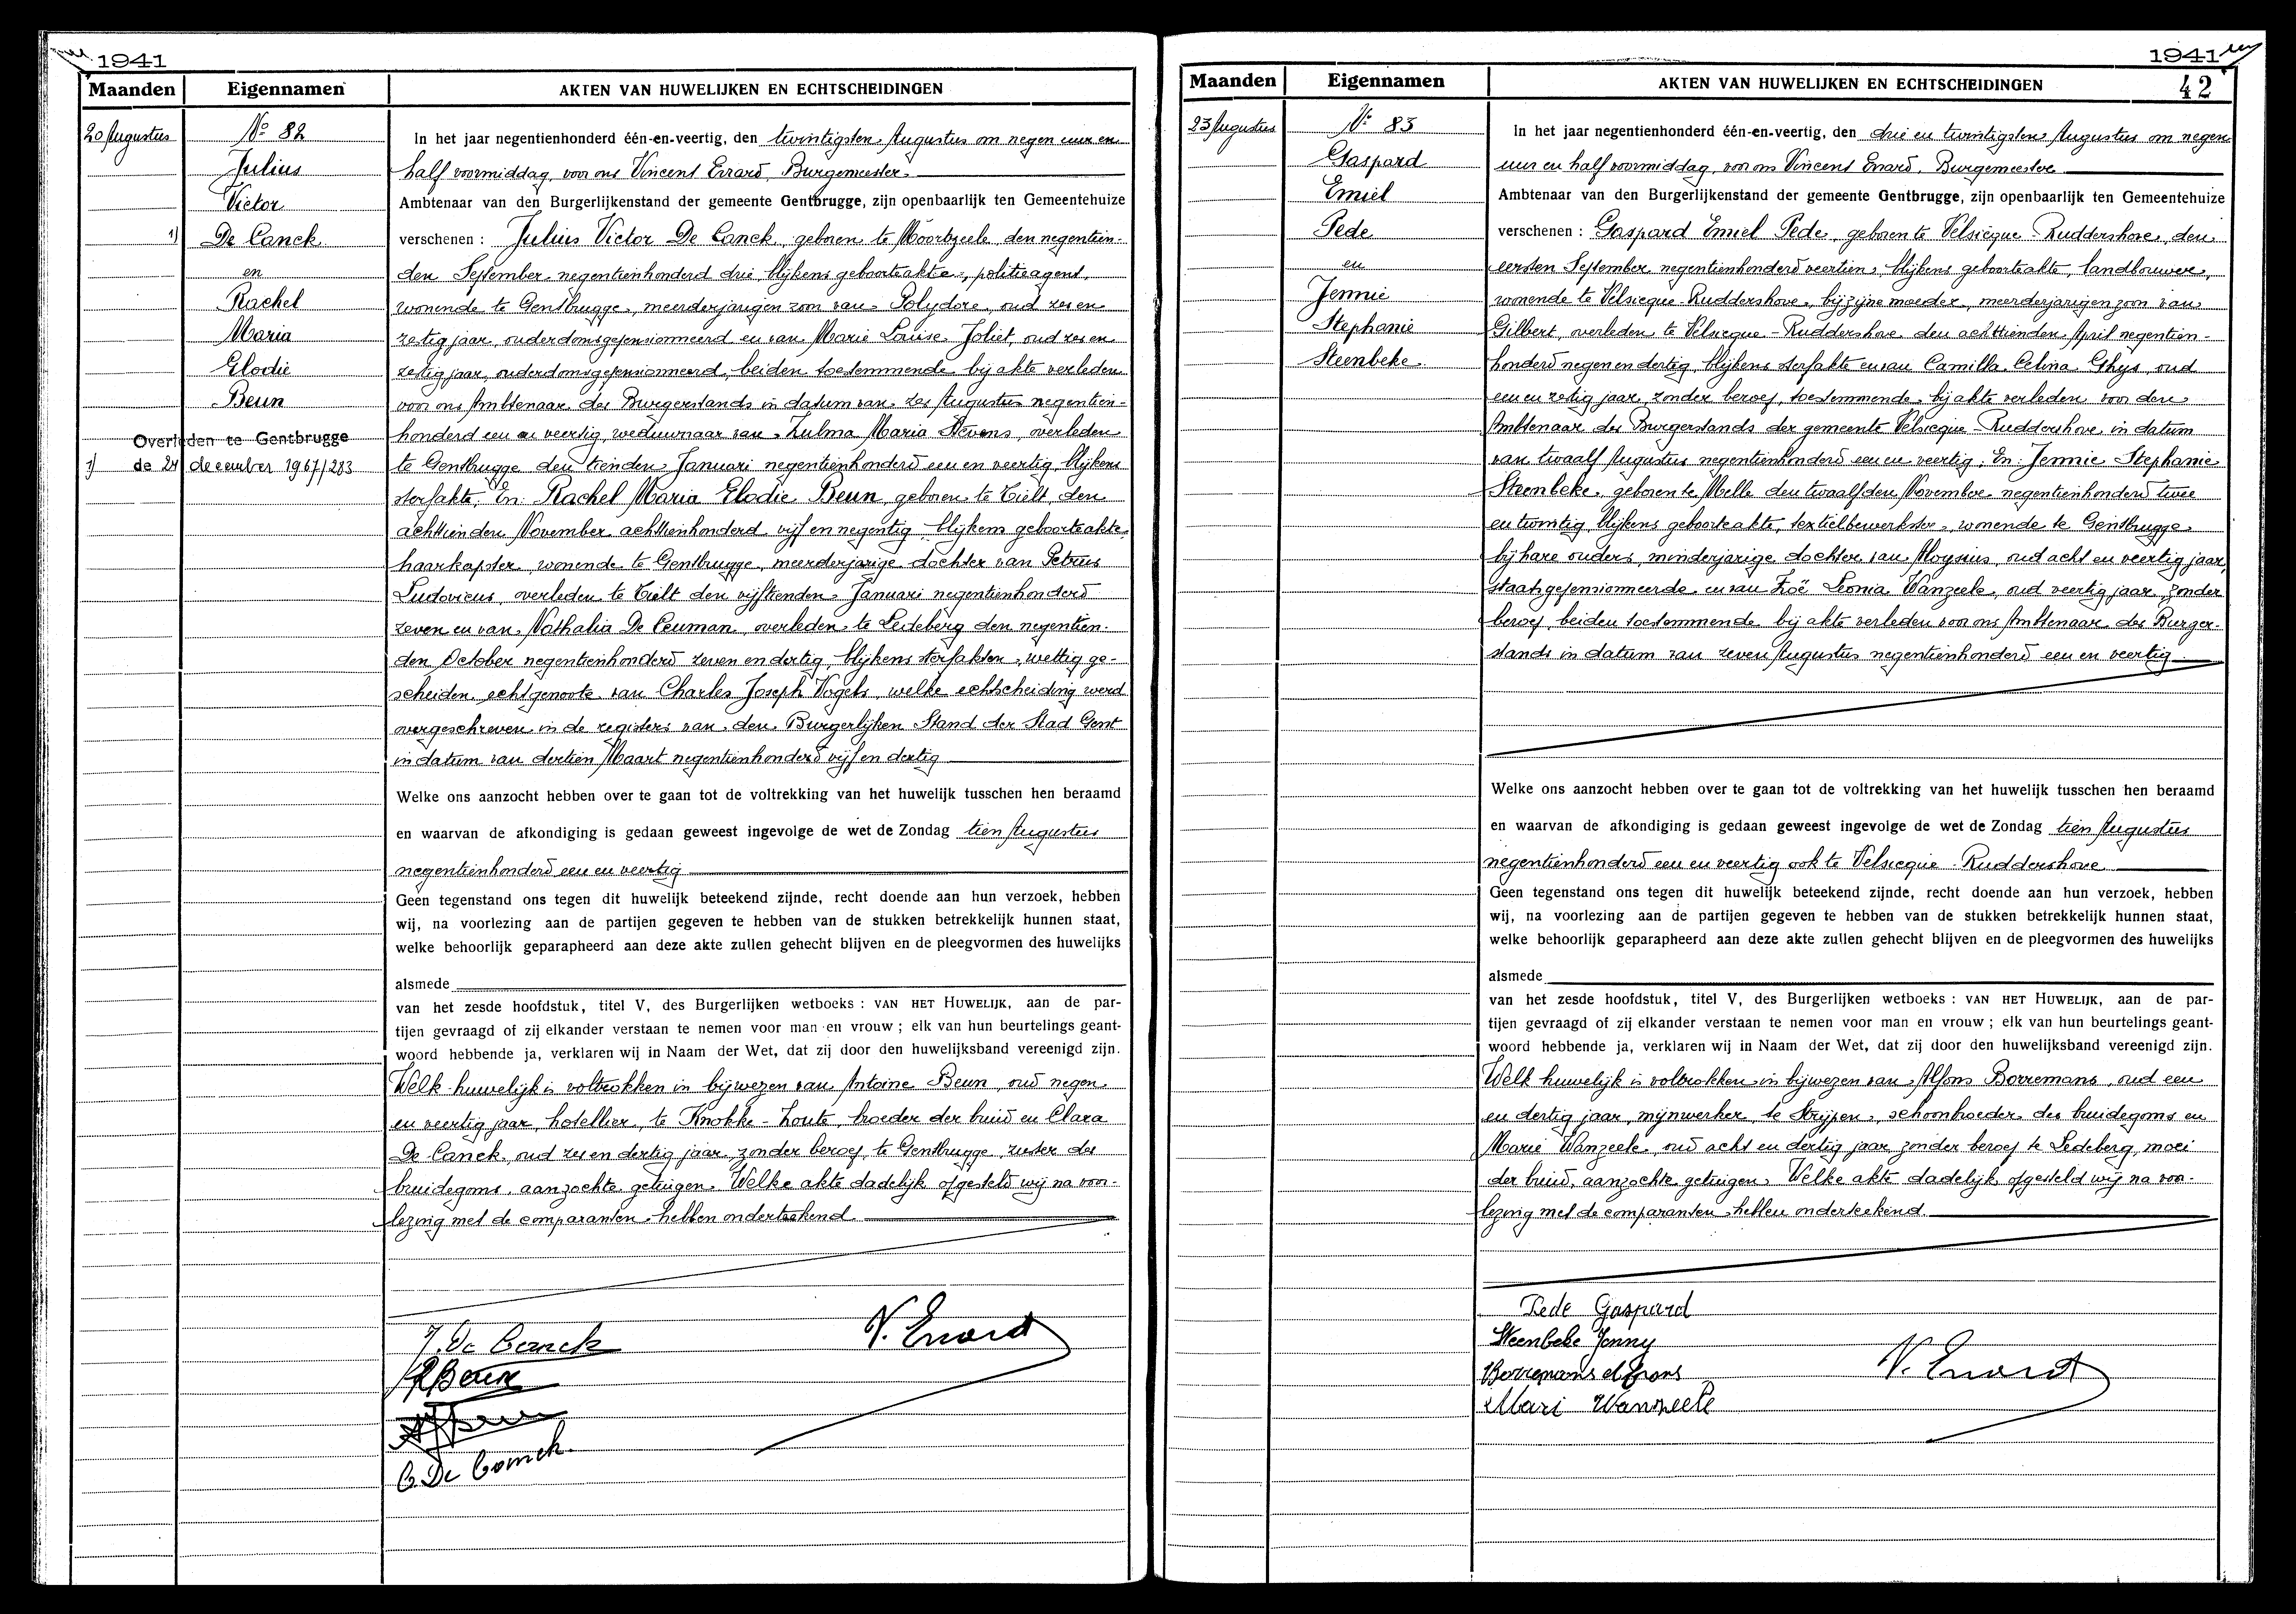 1941
Maanden Eigennamen AKTEN VAN HUWELIJKEN EN ECHTSCHEIDINGEN
20 Augustus
No 82
Julius
Victor
1) De Canck
en
Rachel
Maria
Elodie
Beun
Overleden te Gentbrugge
1) de 24 december 1967/283
In het jaar negentienhonderd één-en-veertig, den twintigsten Augustus om negen uur en
half voormiddag, voor ons Vincent Errard, Burgemeester
Ambtenaar van den Burgerlijkenstand der gemeente Gentbrugge, zijn openbaarlijk ten Gemeentehuize
verschenen : Julius Victor De Canck, geboren te Moortzeele, den negentien-
den September negentienhonderd drie, blijkens geboorteakte, politieagent,
wonende te Gentbrugge, meerderjarigen zoon van Polydore, oud zes en
zestig jaar, ouderdomsgepensionneerd en van Marie Louise Joliet, oud zes en
zestig jaar, ouderdomsgepensionneerd, beiden toestemmende bij akte verleden
voor ons Ambtenaar des Burgerstands in datum van zes Augustus negentien-
honderd een en veertig, weduwnaar van Zulma Maria Stevens, overleden
te Gentbrugge den tienden Januari negentienhonderd een en veertig, blijkens
sterfakte; En: Rachel Maria Elodie Beun, geboren te Tielt, den
achttienden November achttienhonderd vijf en negentig, blijkens geboorteakte,
haarkapster, wonende te Gentbrugge, meerderjarige dochter van Petrus
Ludovicus, overleden te Tielt den vijftienden Januari negentienhonderd
zeven en van Nathalia De Ceuman, overleden te Ledeberg den negentien-
den October negentienhonderd zeven en dertig, blijkens sterfakten, wettig ge-
scheiden echtgenoote van Charles Joseph Vogels, welke echtscheiding werd
overgeschreven in de registers van den Burgerlijken Stand der Stad Gent
in datum van dertien Maart negentienhonderd vijf en dertig
Welke ons aanzocht hebben over te gaan tot de voltrekking van het huwelijk tusschen hen beraamd
en waarvan de afkondiging is gedaan geweest ingevolge de wet de Zondag tien Augustus
negentienhonderd een en veertig
Geen tegenstand ons tegen dit huwelijk beteekend zijnde, recht doende aan hun verzoek, hebben
wij, na voorlezing aan de partijen gegeven te hebben van de stukken betrekkelijk hunnen staat,
welke behoorlijk geparapheerd aan deze akte zullen gehecht blijven en de pleegvormen des huwelijks
alsmede
van het zesde hoofdstuk, titel V, des Burgerlijken wetboeks : VAN HET HUWELIJK, aan de par-
tijen gevraagd of zij elkander verstaan te nemen voor man en vrouw ; elk van hun beurtelings geant-
woord hebbende ja, verklaren wij in Naam der Wet, dat zij door den huwelijksband vereenigd zijn.
Welk huwelijk is voltrokken in bijwezen van Antoine Beun, oud negen
en veertig jaar, hotellier, te Knokke-Zoute, broeder der bruid en Clara
De Canck, oud zes en dertig jaar, zonder beroep, te Gentbrugge, zuster des
bruidegoms, aanzochte getuigen. Welke akte dadelijk opgesteld wij na voor-
lezing met de comparanten hebben onderteekend.
J. De Canck
V. Errard
R Beun
C. De Canck.
1941
42
Maanden Eigennamen AKTEN VAN HUWELIJKEN EN ECHTSCHEIDINGEN
23 Augustus
No 83
Gaspard
Emiel
Pede
en
Jennie
Stephanie
Steenbeke
In het jaar negentienhonderd één-en-veertig, den drie en twintigsten Augustus om negen
uur en half voormiddag, voor ons Vincent Errard, Burgemeester
Ambtenaar van den Burgerlijkenstand der gemeente Gentbrugge, zijn openbaarlijk ten Gemeentehuize
verschenen : Gaspard Emiel Pede, geboren te Velsicque-Ruddershove, den
eersten September negentienhonderd veertien, blijkens geboorteakte, landbouwer,
wonende te Velsicque-Ruddershove, bij zijne moeder, meerderjarigen zoon van
Gilbert, overleden te Velsicque-Ruddershove den achttienden April negentien-
honderd negen en dertig, blijkens sterfakte en van Camilla Celina Ghys, oud
een en zestig jaar, zonder beroep, toestemmende bij akte verleden voor den
Ambtenaar des Burgerstands der gemeente Velsicque Ruddershove in datum
van twaalf Augustus negentienhonderd een en veertig; En: Jennie Stephanie
Steenbeke, geboren te Melle den twaalfden November negentienhonderd twee
en twintig, blijkens geboorteakte, textielbewerkster, wonende te Gentbrugge
bij hare ouders, minderjarige dochter van Aloysius, oud acht en veertig jaar,
staatsgepensionneerde en van Zoë Leonia Wanzeele, oud veertig jaar, zonder
beroep, beiden toestemmende bij akte verleden voor ons Ambtenaar des Burger-
stands in datum van zeven Augustus negentienhonderd een en veertig
Welke ons aanzocht hebben over te gaan tot de voltrekking van het huwelijk tusschen hen beraamd
en waarvan de afkondiging is gedaan geweest ingevolge de wet de Zondag tien Augustus
negentienhonderd een en veertig ook te Velsicque-Ruddershove
Geen tegenstand ons tegen dit huwelijk beteekend zijnde, recht doende aan hun verzoek, hebben
wij, na voorlezing aan de partijen gegeven te hebben van de stukken betrekkelijk hunnen staat,
welke behoorlijk geparapheerd aan deze akte zullen gehecht blijven en de pleegvormen des huwelijks
alsmede
van het zesde hoofdstuk, titel V, des Burgerlijken wetboeks : VAN HET HUWELIJK, aan de par-
tijen gevraagd of zij elkander verstaan te nemen voor man en vrouw ; elk van hun beurtelings geant-
woord hebbende ja, verklaren wij in Naam der Wet, dat zij door den huwelijksband vereenigd zijn.
Welk huwelijk is voltrokken in bijwezen van Alfons Borremans, oud een
en dertig jaar, mijnwerker, te Strijpen, schoonbroeder des bruidegoms en
Marie Wanzeele, oud acht en dertig jaar, zonder beroep te Ledeberg, moei
der bruid, aanzochte getuigen. Welke akte dadelijk opgesteld wij na voor-
lezing met de comparanten hebben onderteekend.
Pede Gaspard
Steenbeke Jenny
V. Errard
Borremans Alfons
Mari Wanzeele